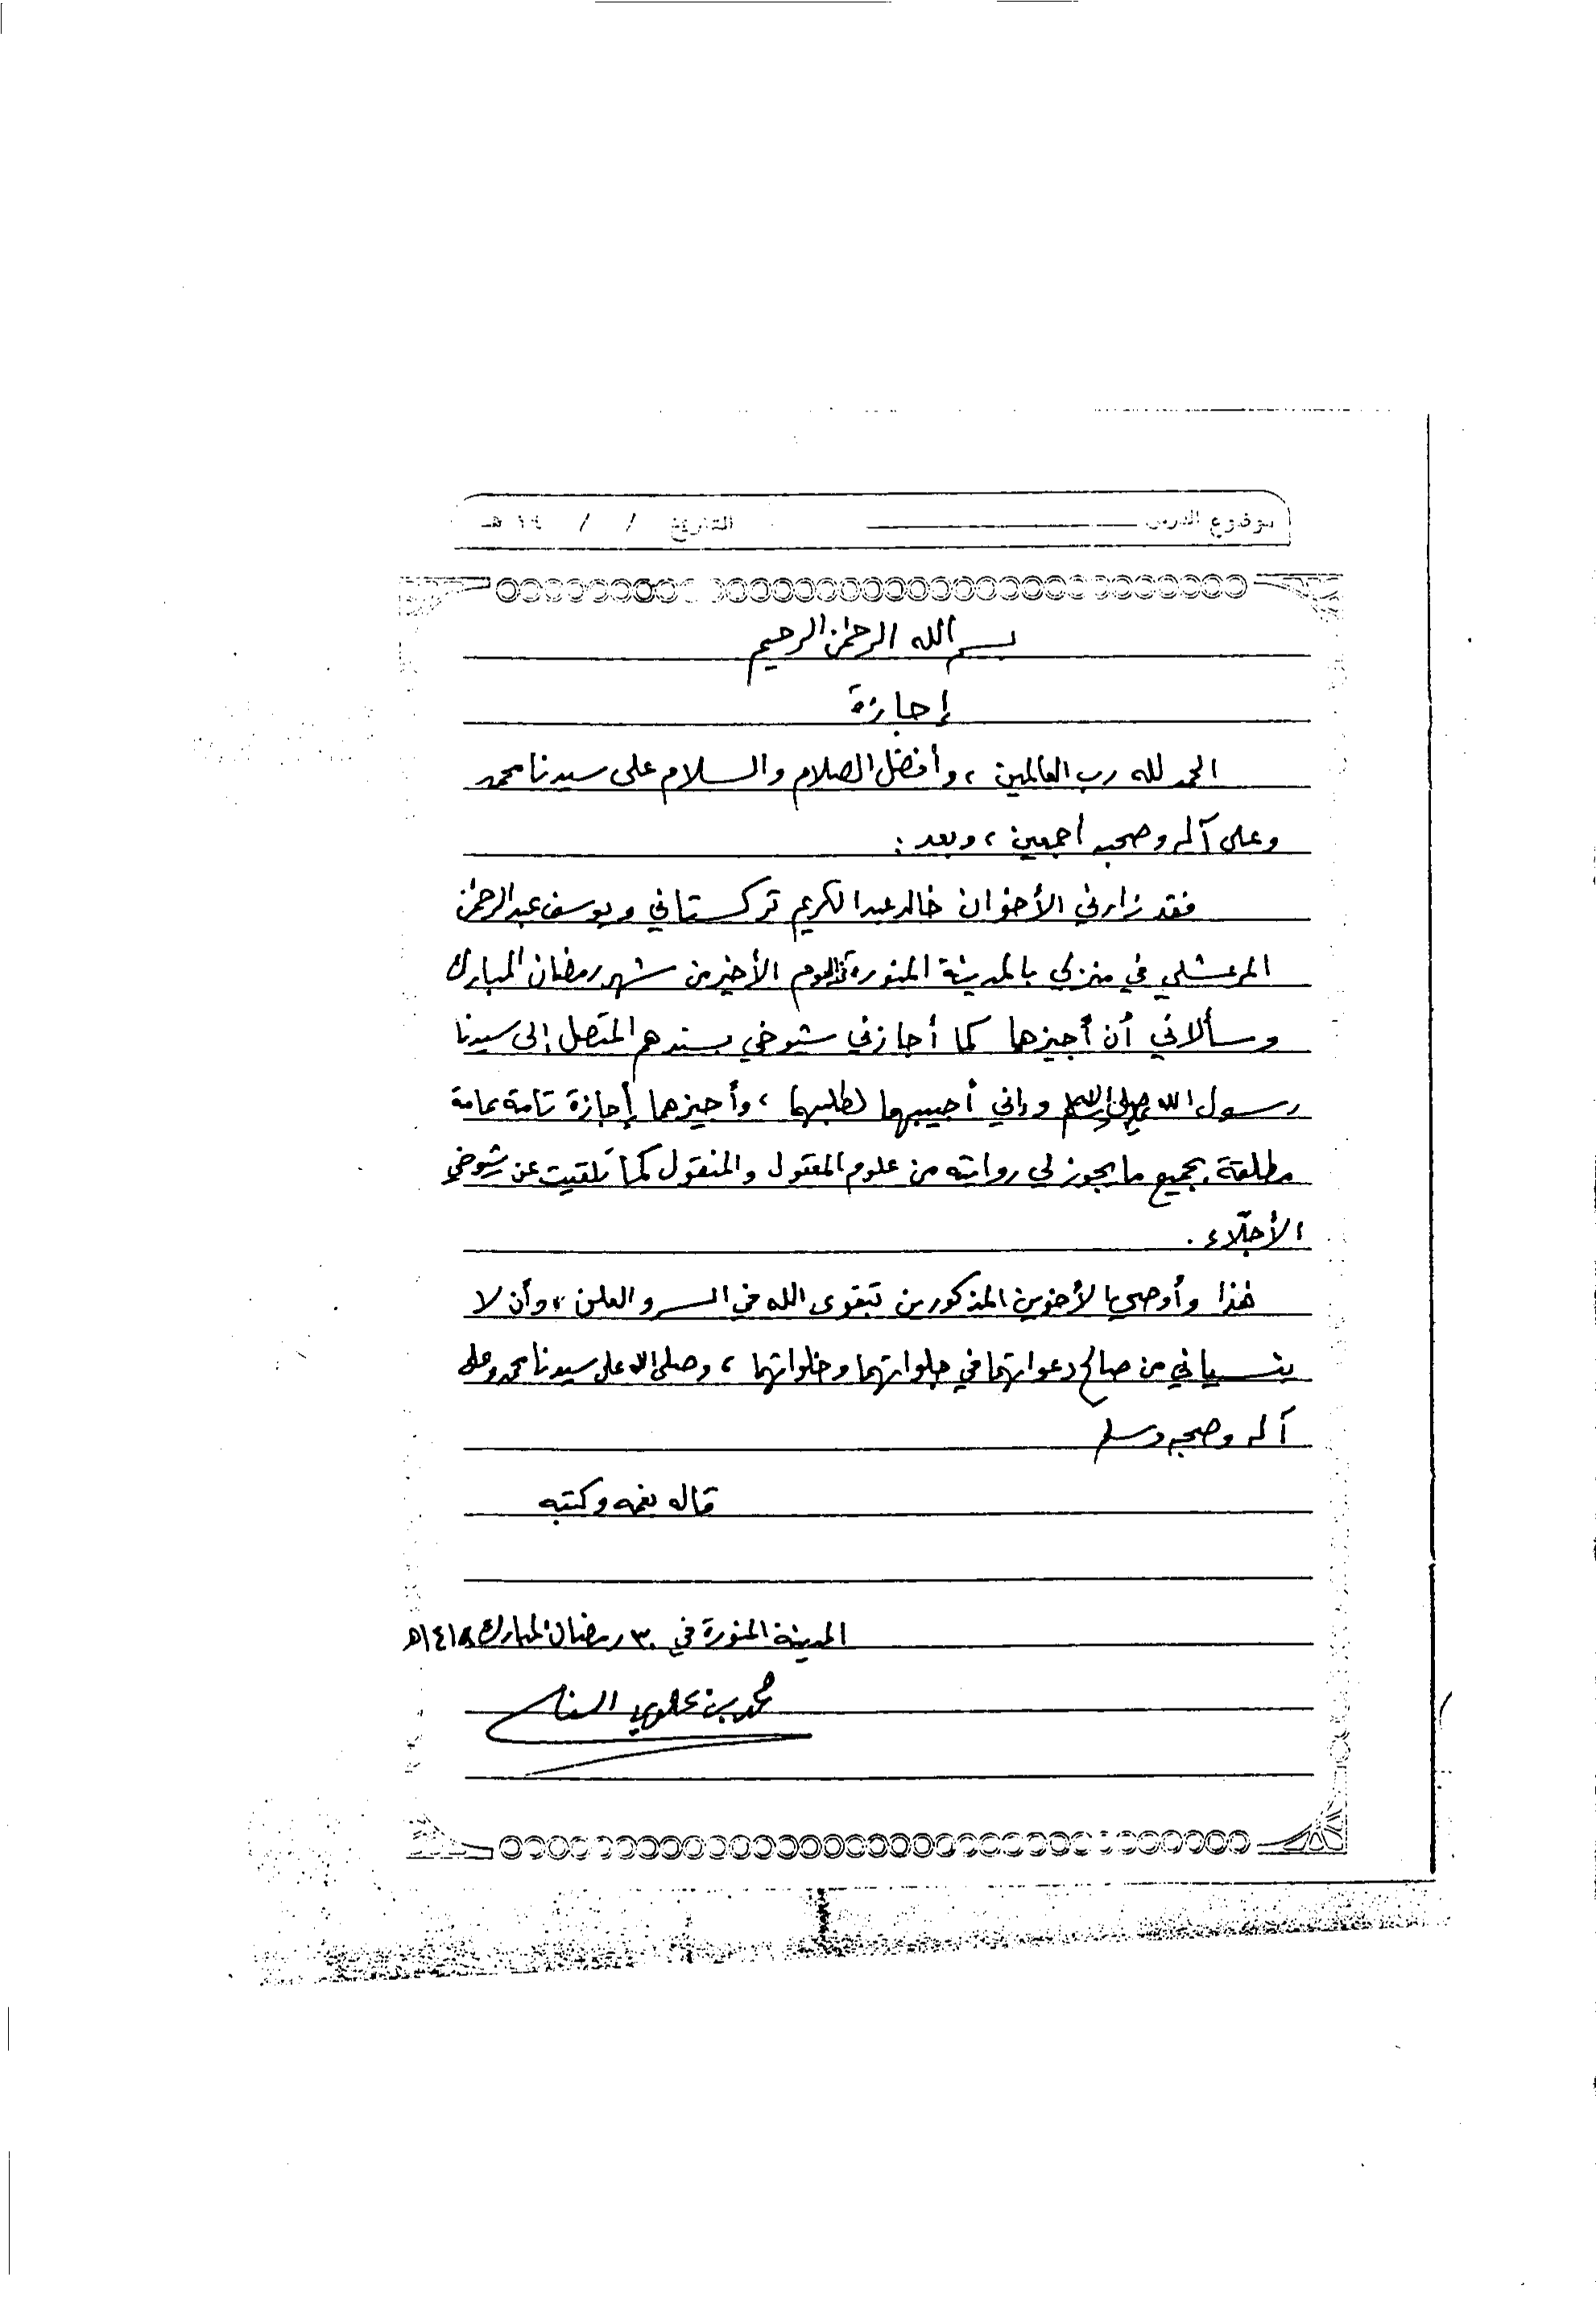 موضوع الدرس التاريخ / / ١٤ هـ
بسم الله الرحمن الرحيم
إجازة
الحمد لله رب العالمين ، وأفضل الصلاة والسلام على سيدنا محمد
وعلى آله وصحبه أجمعين ، وبعد :
فقد زارني الأخوان خالد عبدالكريم تركستاني ويوسف عبدالرحمن
المرعشلي في منزلي بالمدينة المنورة في اليوم الأخير من شهر رمضان المبارك
وسألاني أن أجيزهما كما أجازني شيوخي بسندهم المتصل إلى سيدنا
رسول الله صلى الله عليه وسلم وإني أجيبهما لطلبهما ، وأجيزهما إجازة تامة عامة
مطلقة بجميع ما يجوز لي روايته من علوم المعقول والمنقول كما تلقيت عن شيوخي
الأجلّاء .
هذا وأوصي الأخوين المذكورين بتقوى الله في السر والعلن ، وأن لا
ينسياني من صالح دعواتهما في جلواتهما وخلواتهما ، وصلى الله على سيدنا محمد وعلى
آله وصحبه وسلم
قاله بفمه وكتبه
المدينة المنورة في ٣٠ رمضان المبارك ١٤١٨هـ
محمد بن علوي